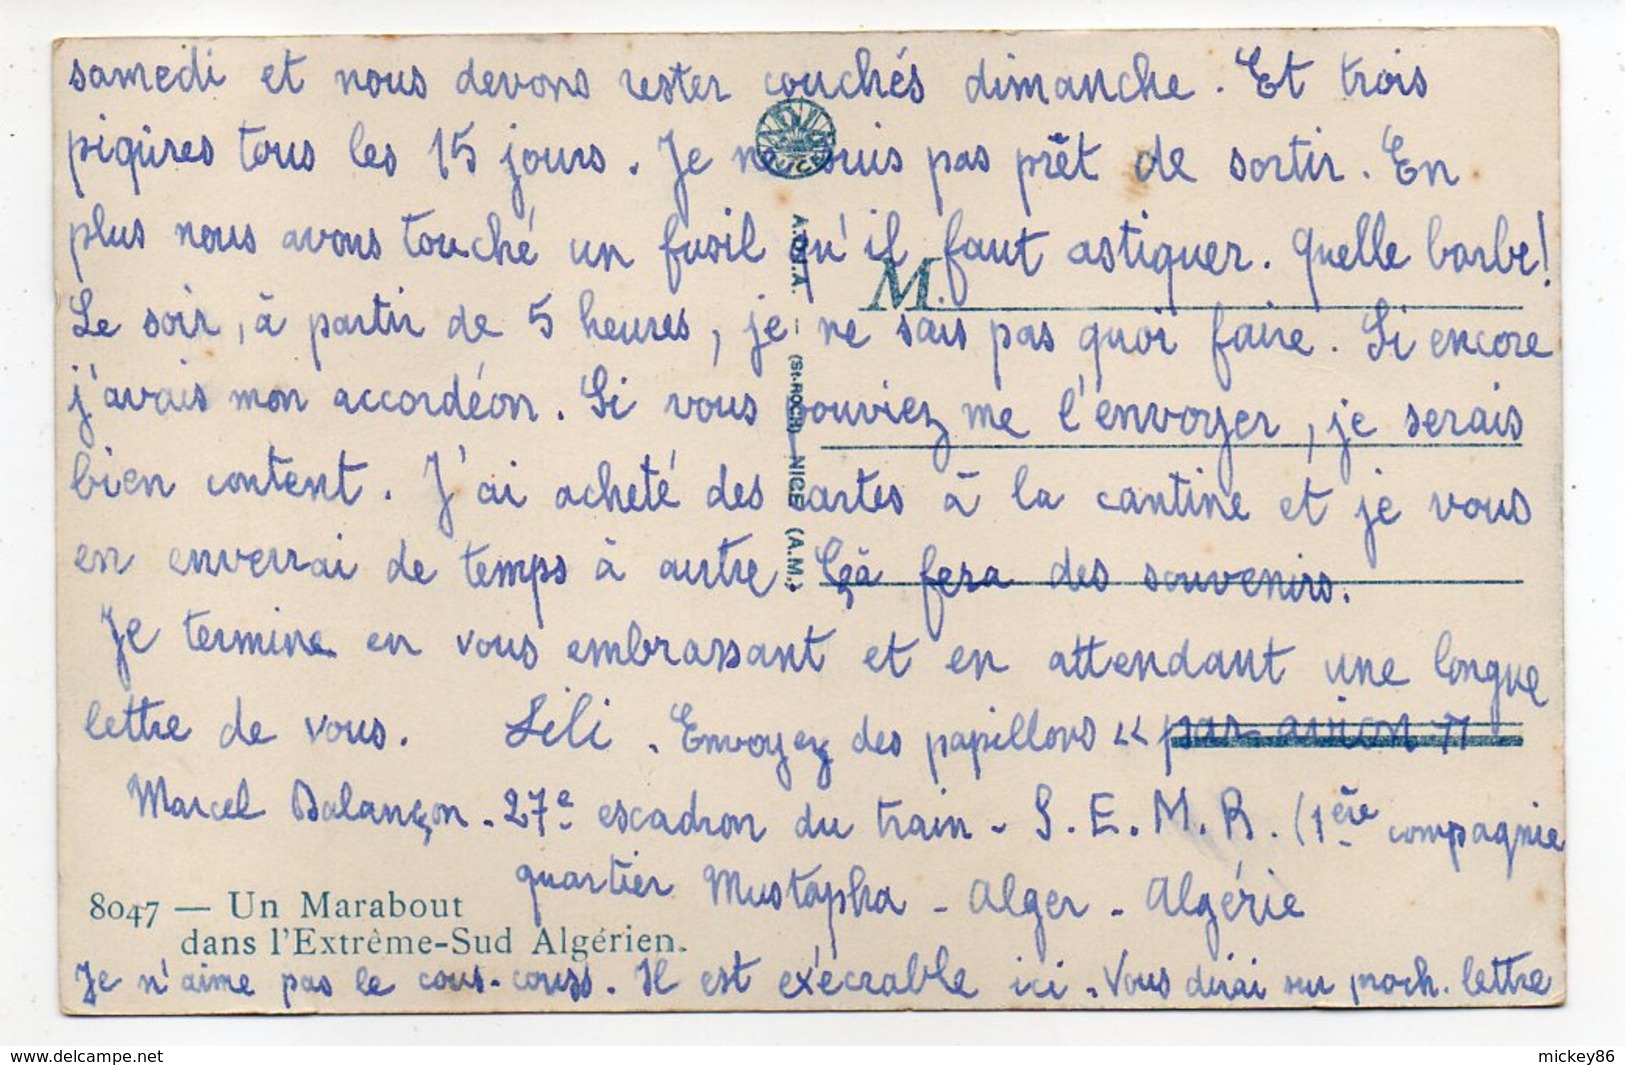 samedi et nous devons rester couchés dimanche. Et trois
piqûres tous les 15 jours. Je ne suis pas prêt de sortir. En
plus nous avons touché un fusil qu'il faut astiquer. Quelle barbe!
Le soir, à partir de 5 heures, je ne sais pas quoi faire. Si encore
j'avais mon accordéon. Si vous pouviez me l'envoyer, je serais
bien content. J'ai acheté des cartes à la cantine et je vous
en enverrai de temps à autre. Çà fera des souvenirs.
Je termine en vous embrassant et en attendant une longue
lettre de vous. Lili. Envoyez des papillons "par avion"
Marcel Balançon - 27e escadron du train - S.E.M.R. (1ère compagnie
quartier Mustapha - Alger - Algérie
8047 — Un Marabout
dans l'Extrême-Sud Algérien.
Je n'aime pas le cous-couss. Il est exécrable ici. Vous dirai sur proch. lettre
M.
(St-ROCH) NICE (A.M.)
www.delcampe.net
mickey86